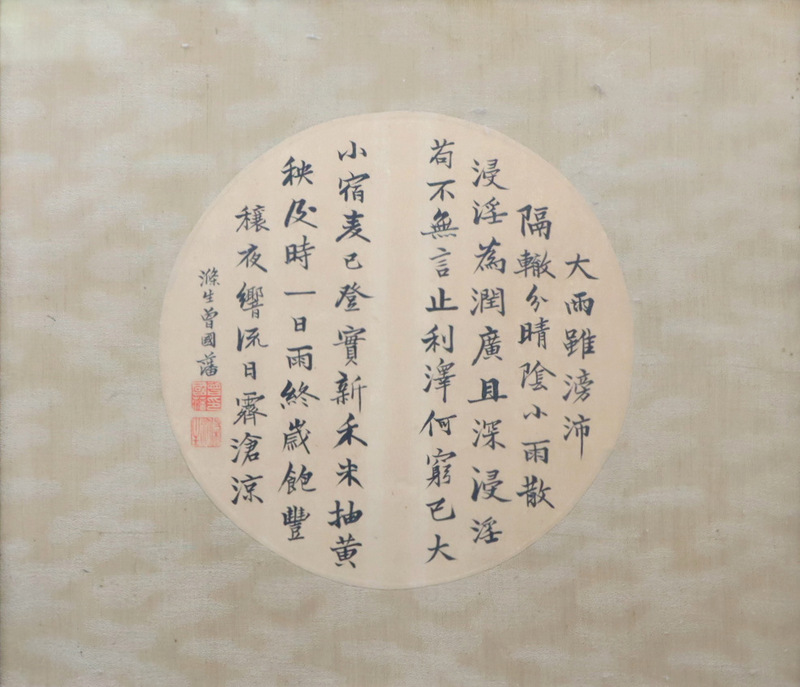 大雨雖滂沛
隔轍分晴陰小雨散
浸淫為潤廣且深浸淫
苟不無言止利澤何窮已大
小宿麦已登實新禾未抽黄
秧及時一日雨終歲飽豐
穰夜響流日霽滄涼
滌生曾國藩